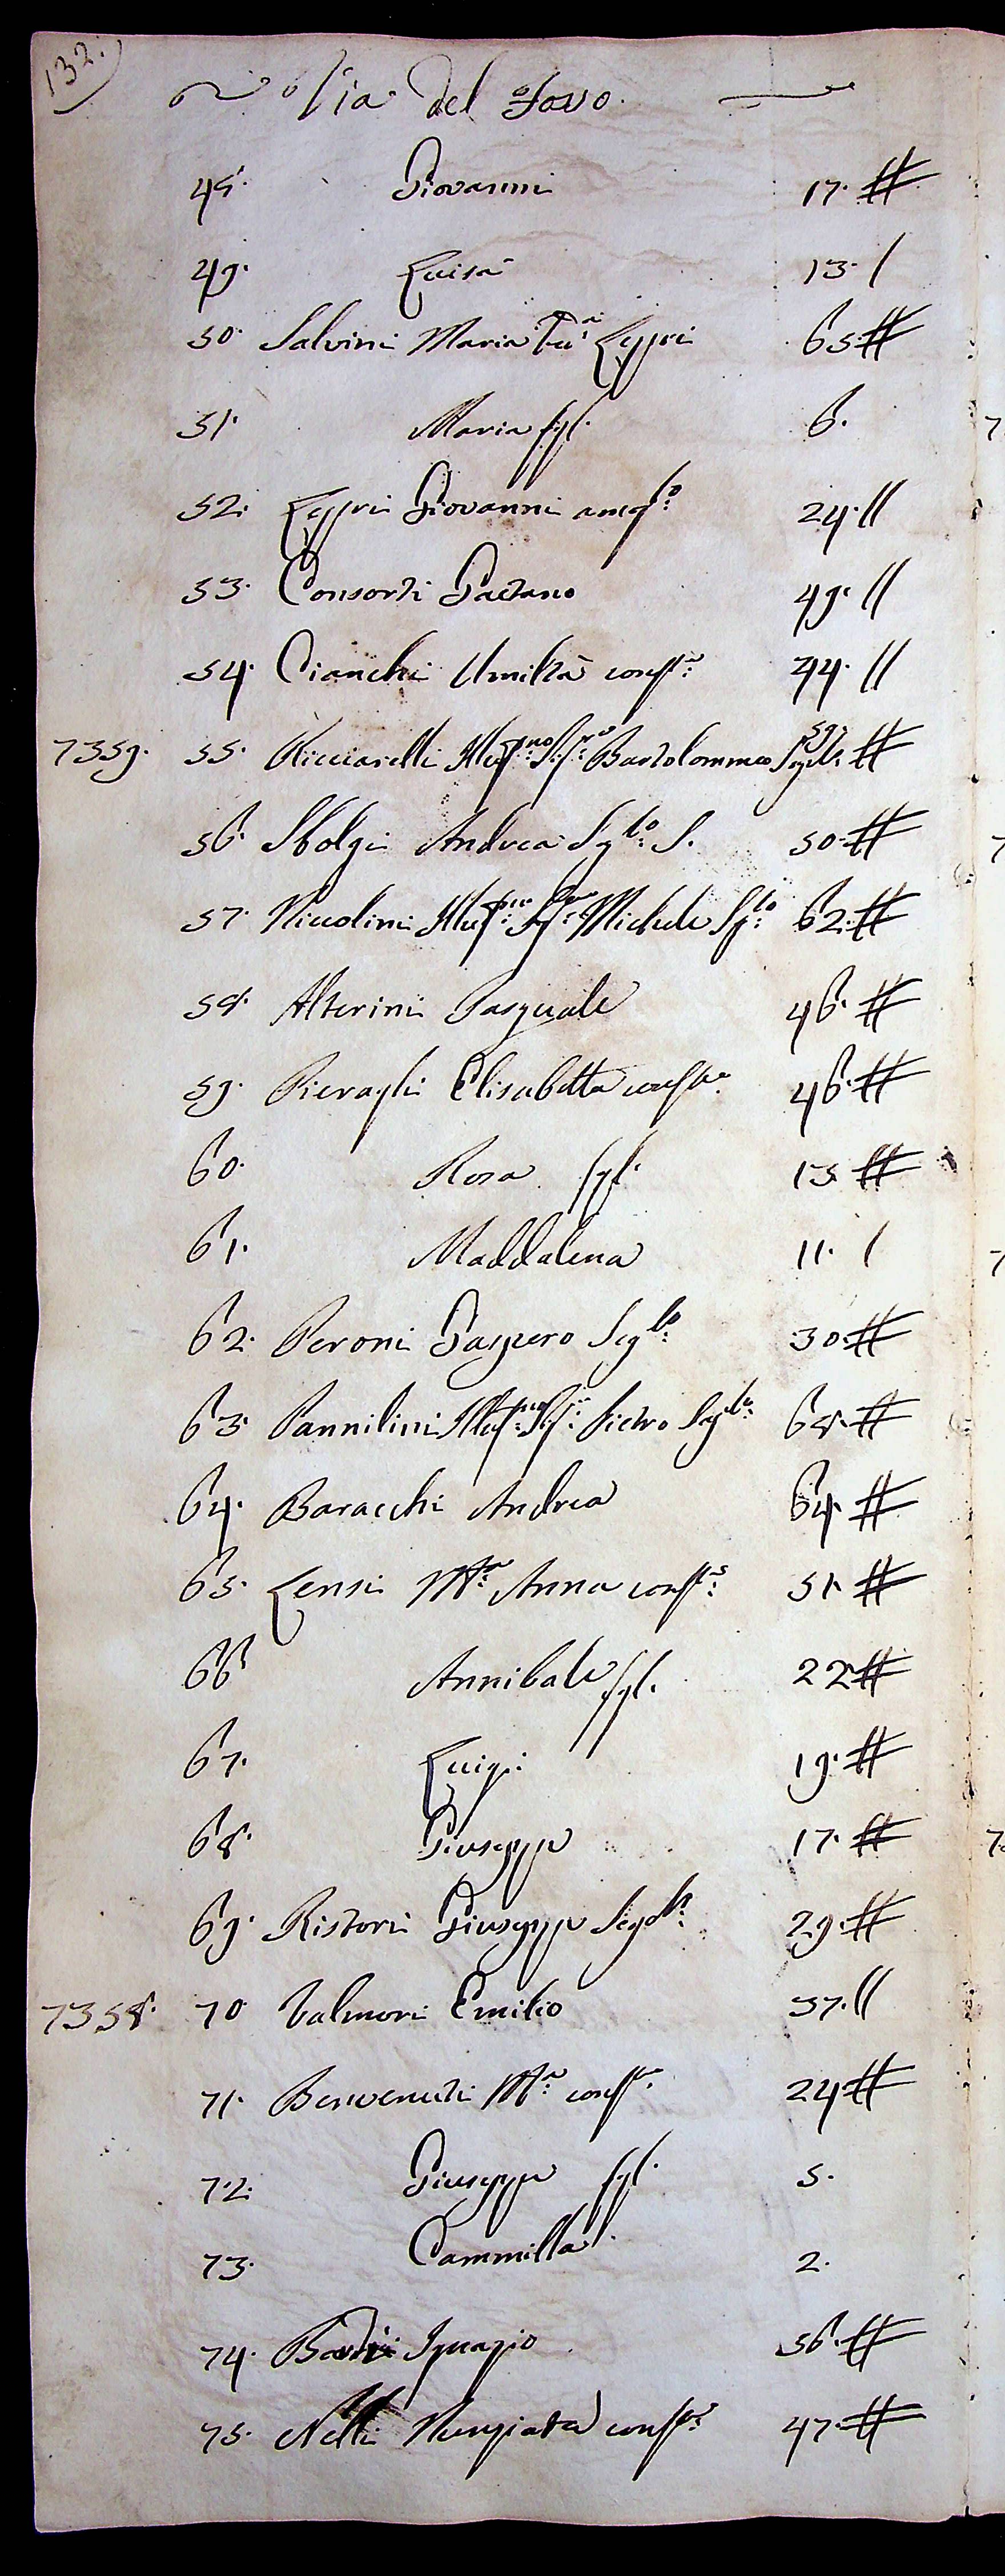 132.
Via del Fosso.
48. Giovanni 17. #
49. Luisa 13. /
50. Salvini Maria Va Leppri 65. #
51. Maria figl. 6.
52. Leppri Giovanni amogto 24. //
53. Consorti Gaetano 49. //
54. Cianchi Umiltà consrte 44. //
7359. 55. Ricciarelli Illusmo Sigre Bartolommeo Scgle 59. #
56. Sbolgi Andrea Sglo S. 50. #
57. Niccolini Illusmo Sigre Michele Sglo 62. #
58. Alterini Pasquale 46. #
59. Pieragli Elisabetta consrte 46. #
60. Rosa figl. 15. #
61. Maddalena 11. /
62. Peroni Gaspero Scglo 30. #
63. Pannilini Illusmo Sigre Pietro Scglo 68. #
64. Baracchi Andrea 64. #
65. Lensi Ma Anna consrte 51. #
66. Annibale figl. 22. #
67. Luigi 19. #
68. Giuseppe 17. #
69. Ristori Giuseppe Scglo 29. #
7358. 70. Valmori Emilio 37. //
71. Benvenuti Ma consrte 24. #
72. Giuseppe figl. 5.
73. Cammilla 2.
74. Ignazio 56. #
75. Nelli Nunziata consrte 47. #